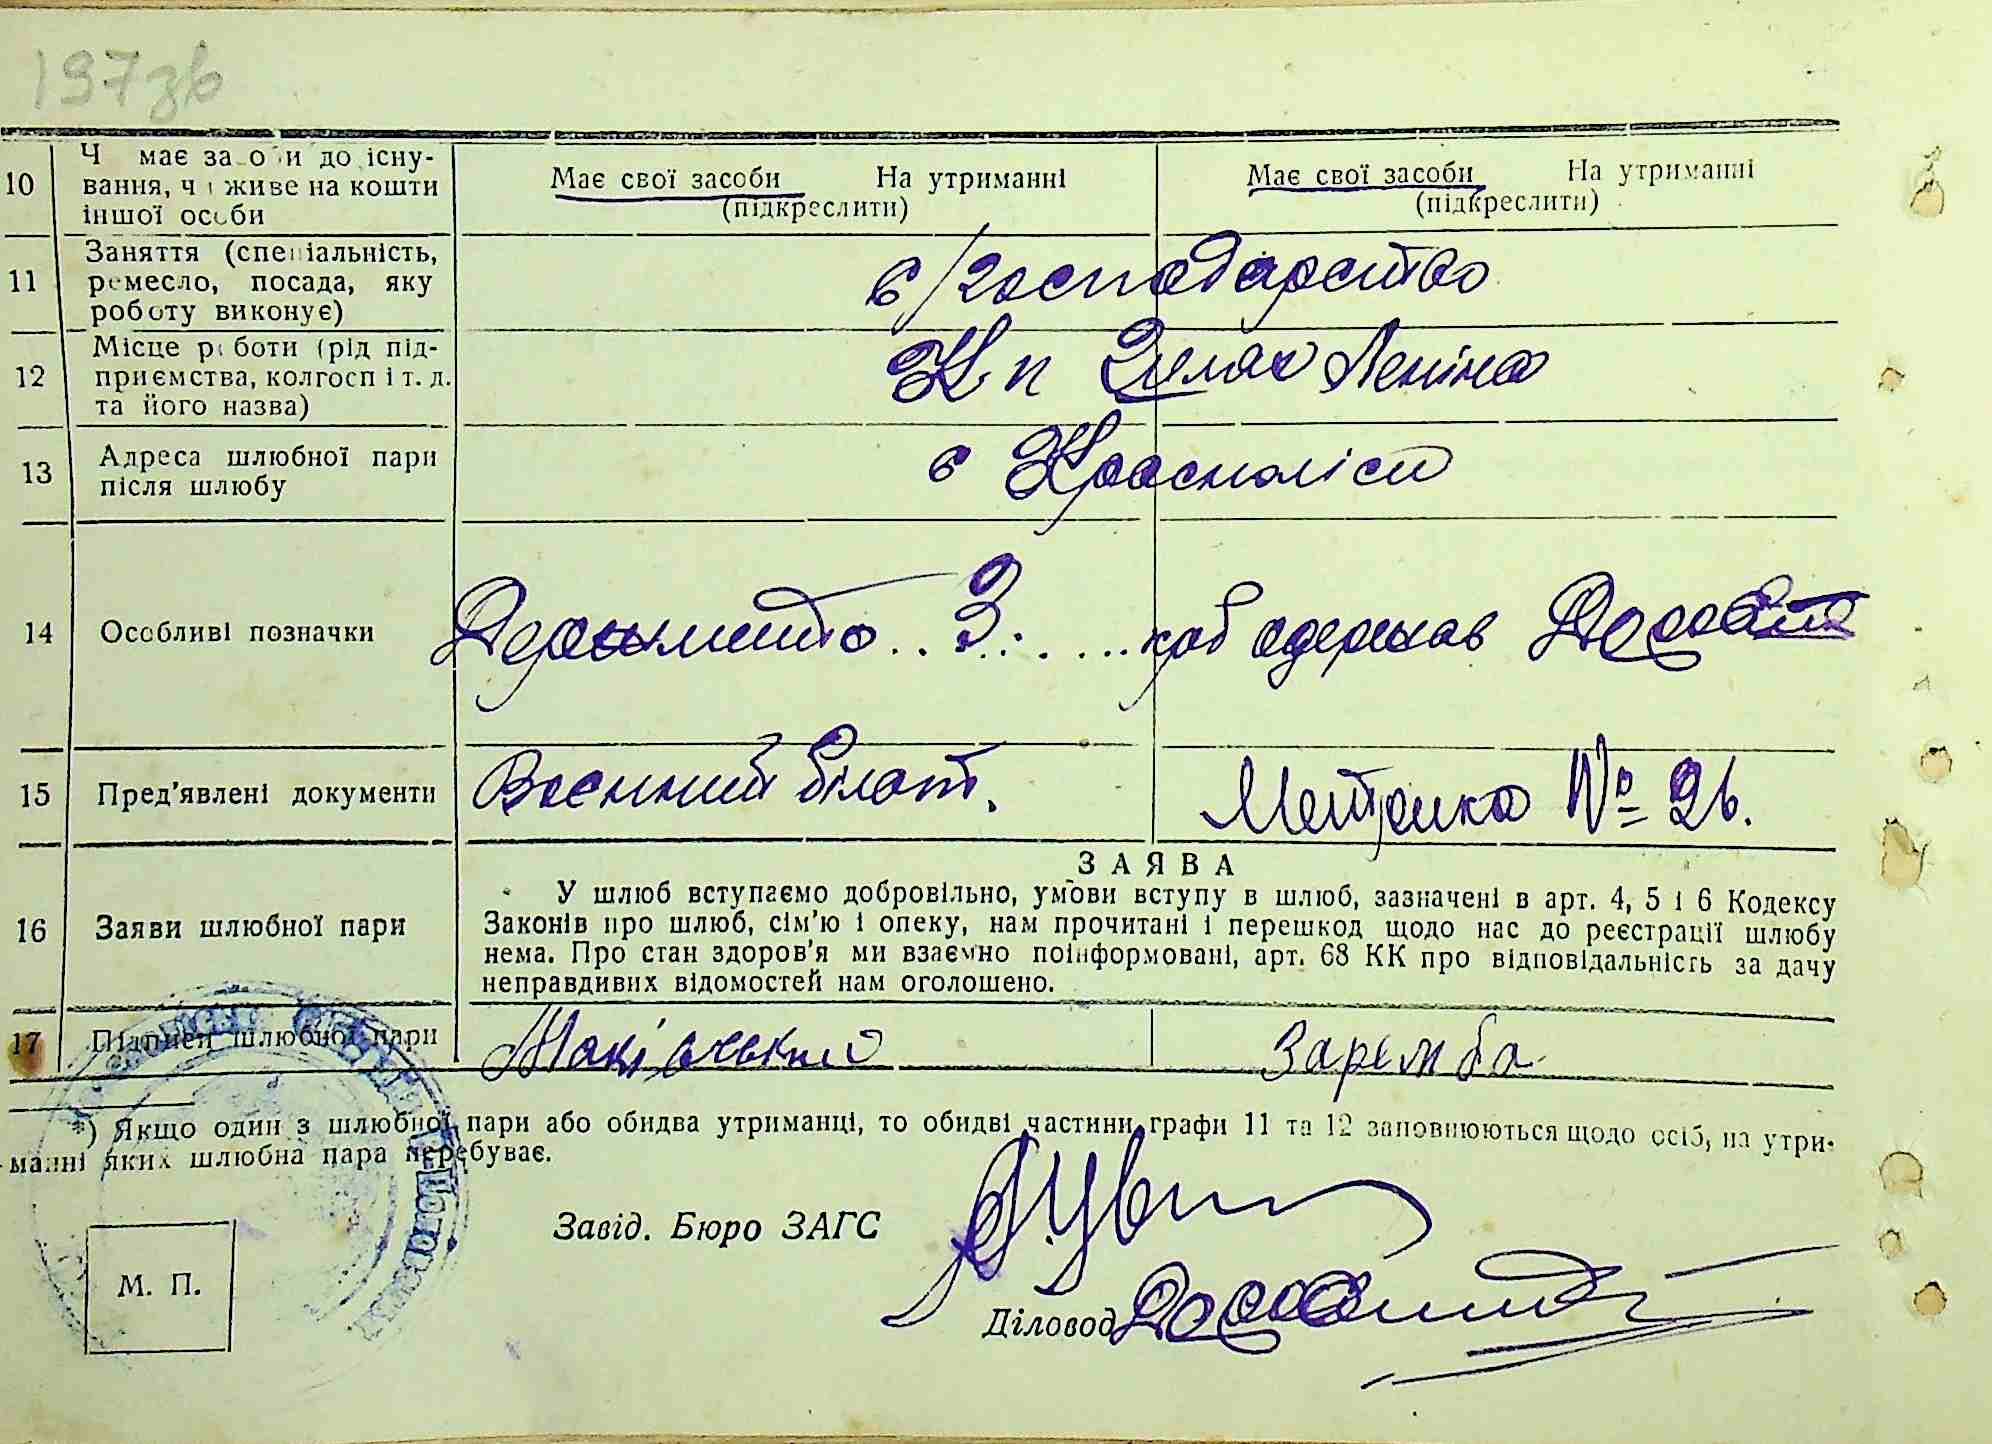 197зв
10 Ч має за о и до існу-
вання, ч живе на кошти
іншої особи
Має свої засоби На утриманні
(підкреслити)
Має свої засоби На утриманні
(підкреслити)
11 Заняття (спеціальність,
ремесло, посада, яку
роботу виконує)
с/господарство
12 Місце роботи (рід під-
приємства, колгосп і т. д.
та його назва)
К-п Шлях Леніна
13 Адреса шлюбної пари
після шлюбу
с Красноліси
14 Особливі позначки
3 крб одержав
15 Пред'явлені документи
Воєнний білет.
Метрика № 26.
16 Заяви шлюбної пари
ЗАЯВА
У шлюб вступаємо добровільно, умови вступу в шлюб, зазначені в арт. 4, 5 і 6 Кодексу
Законів про шлюб, сім'ю і опеку, нам прочитані і перешкод щодо нас до реєстрації шлюбу
нема. Про стан здоров'я ми взаємно поінформовані, арт. 68 КК про відповідальність за дачу
неправдивих відомостей нам оголошено.
17 Підписи шлюбної пари
Маківський
Заремба
*) Якщо один з шлюбної пари або обидва утриманці, то обидві частини графи 11 та 12 заповнюються щодо осіб, на утри-
манні яких шлюбна пара перебуває.
Завід. Бюро ЗАГС
М. П.
Діловод